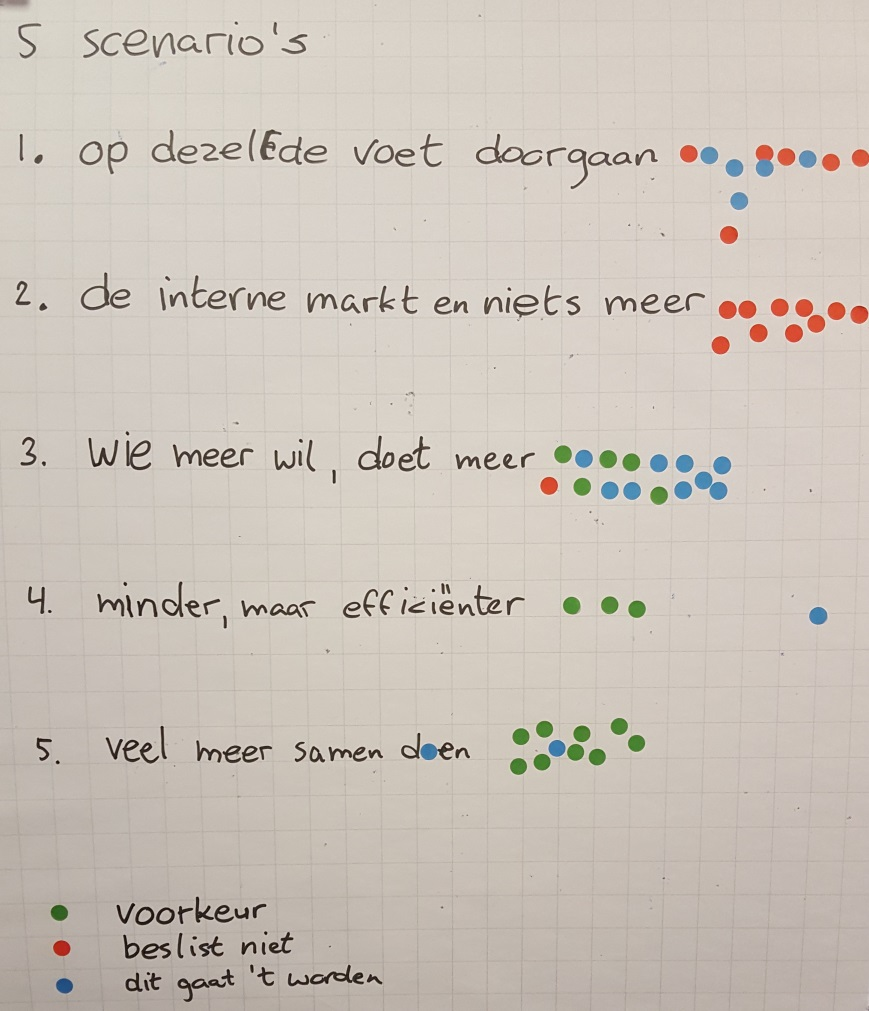 5 scenario's
1. op dezelfde voet doorgaan
2. de interne markt en niets meer
3. Wie meer wil, doet meer
4. minder, maar efficiënter
5. veel meer samen doen
voorkeur
beslist niet
dit gaat 't worden